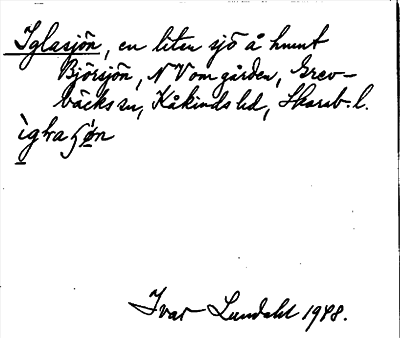 Iglasjön, en liten sjö å hmnt
Björsjön, NV om gården, Grev-
bäcks sn, Kåkinds hd, Skarab. l.
ìgla ʃø̀n
Ivar Lundahl 1948.